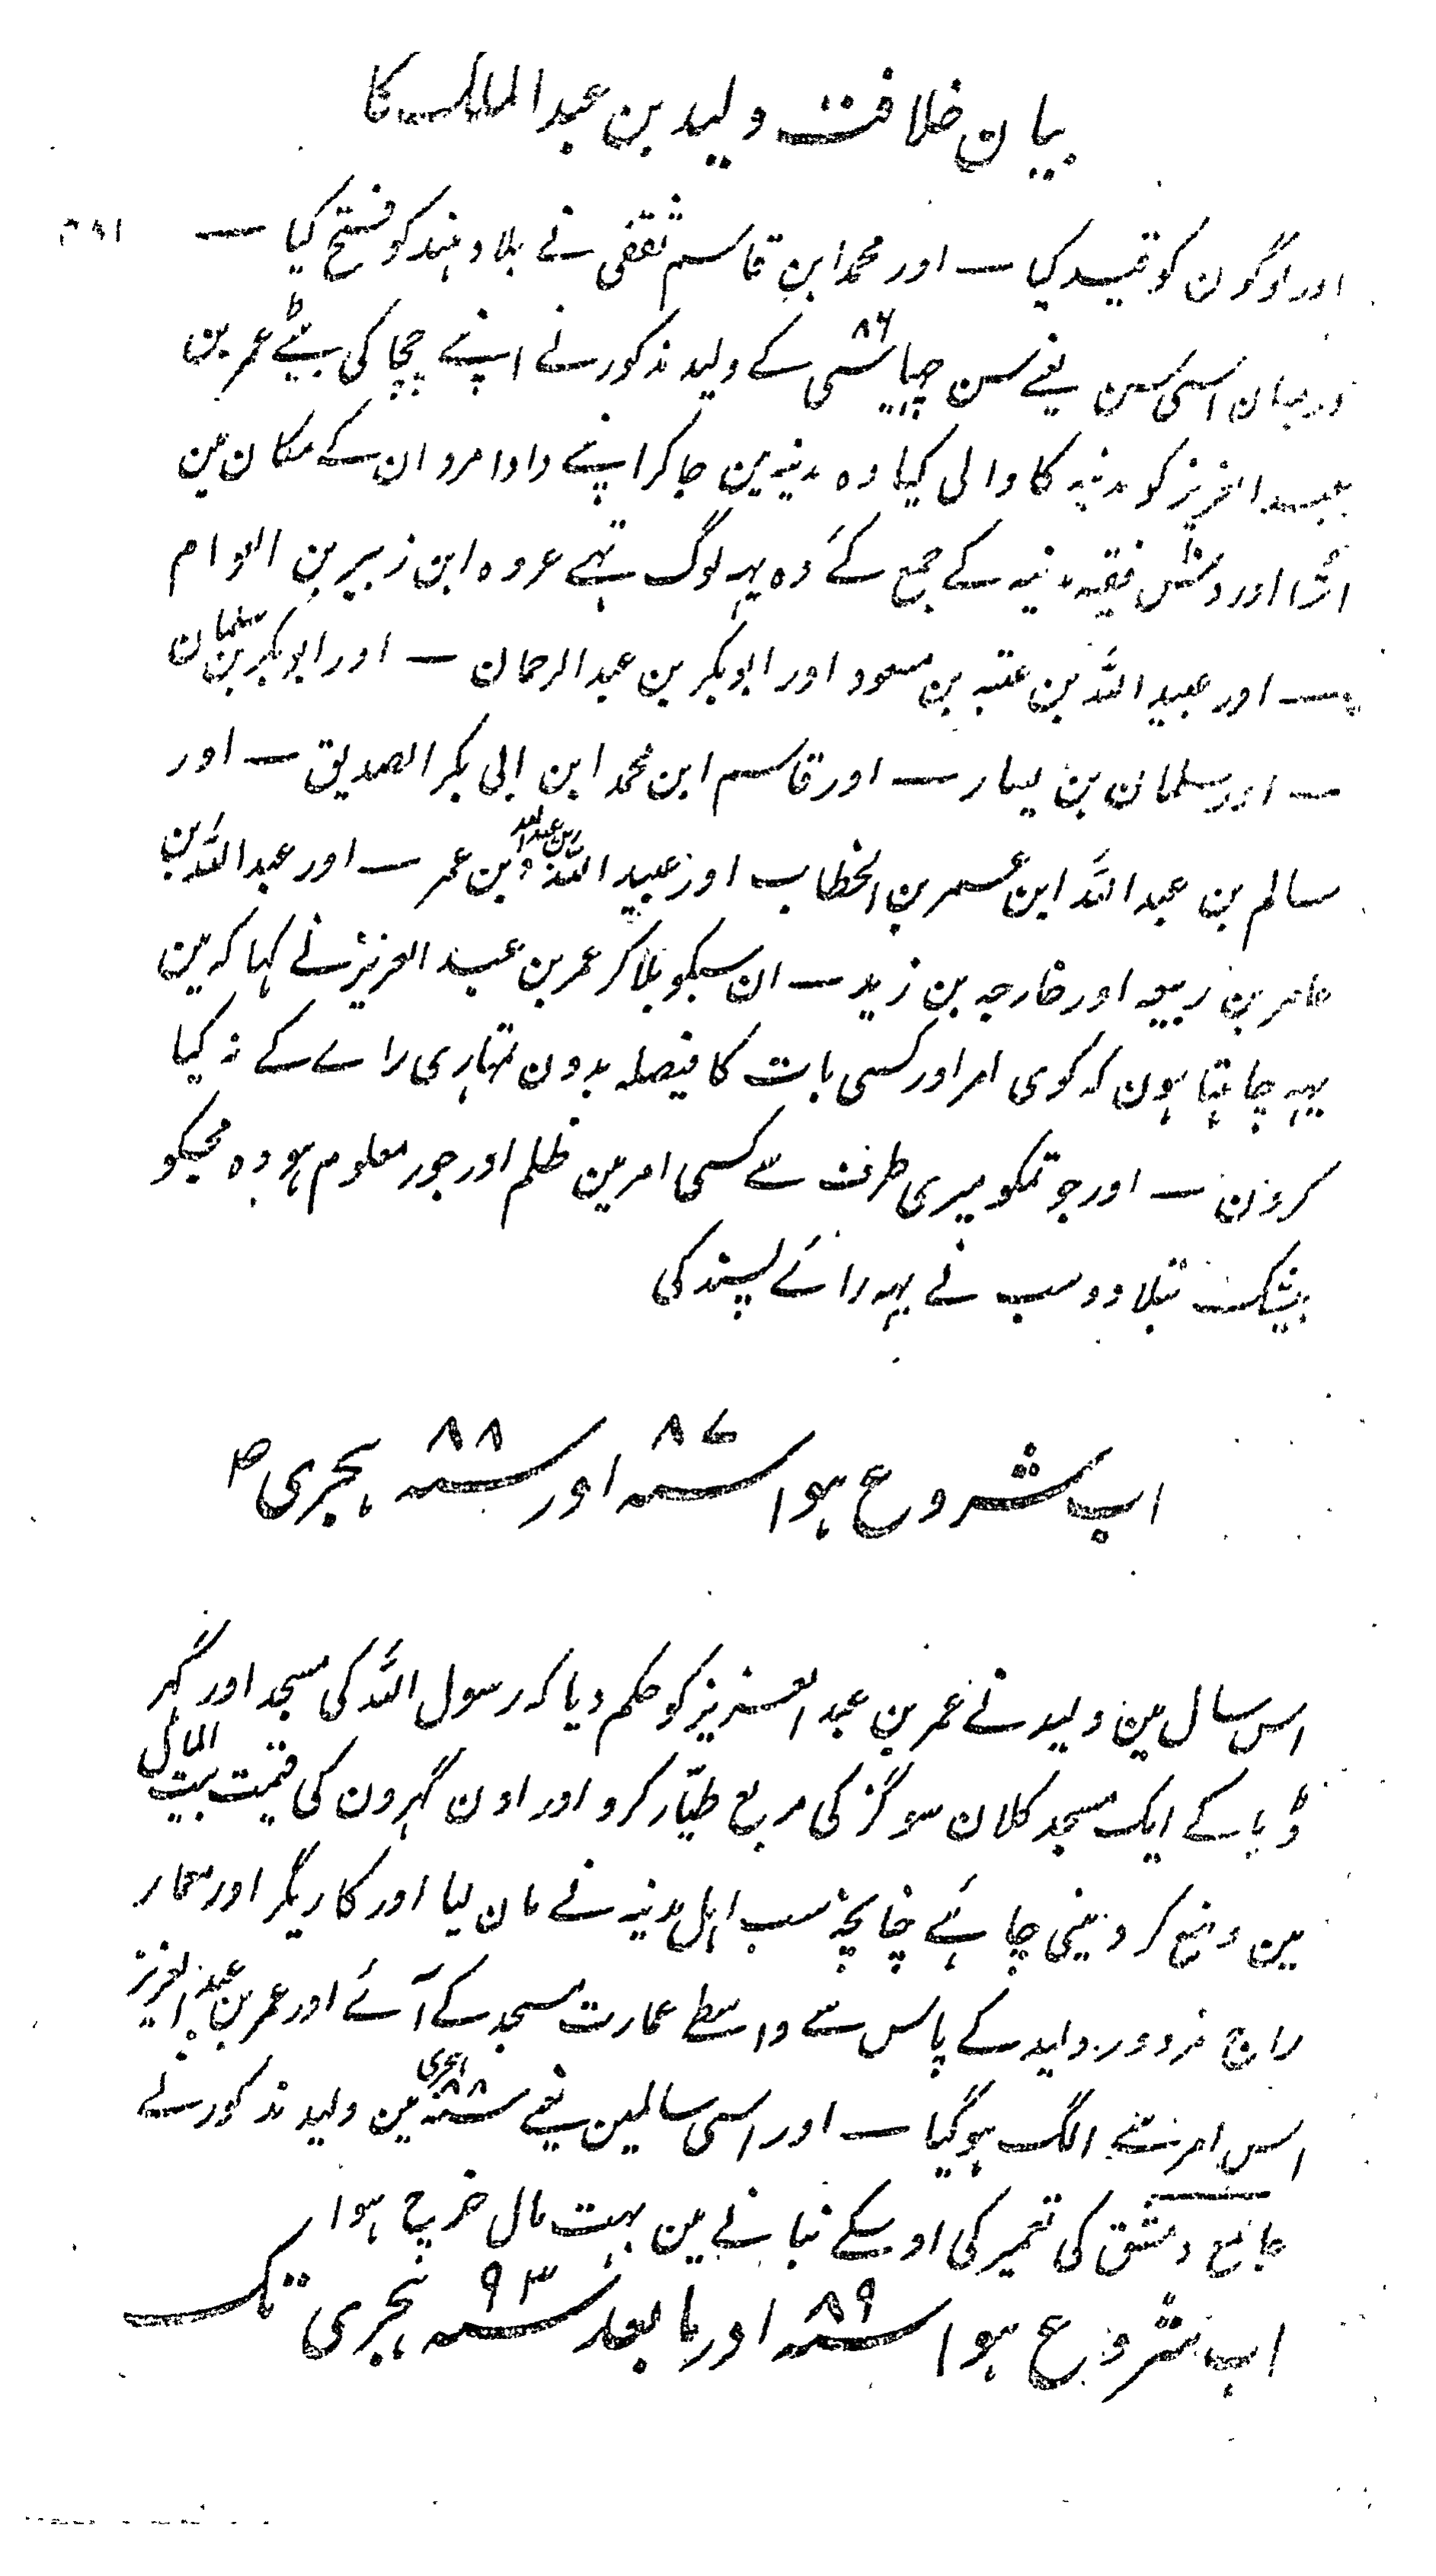 بیان خلافت ولید بن عبدالمالک کا
اور لوگون کو قید کیا — اور محمد ابن قاسم ثقفی نے بلاد ہند کو فتح کیا —
درمیان اسی سن یعنے سن چھیاسی ۸۶ کے ولید مذکور نے اپنے چچا کی بیٹے عمر بن
عبد العزیز کو مدینہ کا والی کیا وہ مدینہ مین جا کر اپنے دادا مروان کے مکان مین
اترا اور دس فقیہ مدنیہ کے جمع کئے وہ یہہ لوگ تہے عروہ ابن زبیر بن العوام
— اور عبید اللہ بن عتبہ بن مسعود اور ابوبکر بن عبد الرحمان — اور ابوبکر بن سلیمان
— اور سلمان بن یسار — اور قاسم ابن محمد ابن ابی بکر الصدیق — اور
سالم بن عبد اللہ ابن عمر بن الخطاب اور عبید اللہ بن عبد اللہ بن عمر — اور عبد اللہ بن
عامر بن ربیعہ اور خارجہ بن زید — ان سبکو بلا کر عمر بن عبد العزیز نے کہا کہ مین
یہہ چاہتا ہون کہ کوی امر اور کسی بات کا فیصلہ بدون تمہاری راے کے نہ کیا
کرون — اور جو تمکو میری طرف سے کسی امر مین ظلم اور جور معلوم ہو وہ مجہکو
بیشک بتلا دو سب نے یہہ رائے پسند کی
اب شروع ہوا سنہ ۸۷ اور سنہ ۸۸ ہجری
اس سال مین ولید نے عمر بن عبد العزیز کو حکم دیا کہ رسول اللہ کی مسجد اور گہر
ڈہا کے ایک مسجد کلان سو گز کی مربع طیّار کرو اور اون گہرون کی قیمت بیت المال
مین وضع کر دینی چاہئے چنانچہ سب اہل مدینہ نے مان لیا اور کاریگر اور معمار
راج مزدور ولید کے پاس سے واسطے عمارت مسجد کے آئے اور عمر بن عبد العزیز
اس امر سے الگ ہو گیا — اور اسی سالمین یعنے سنہ ۸۸ ہجری مین ولید مذکور نے
جامع دمشق کی تعمیر کی اوسکے بنانے مین بہت مال خرچ ہوا
اب شروع ہوا سنہ ۸۹ اور ما بعد سنہ ۹۳ ہجری تک